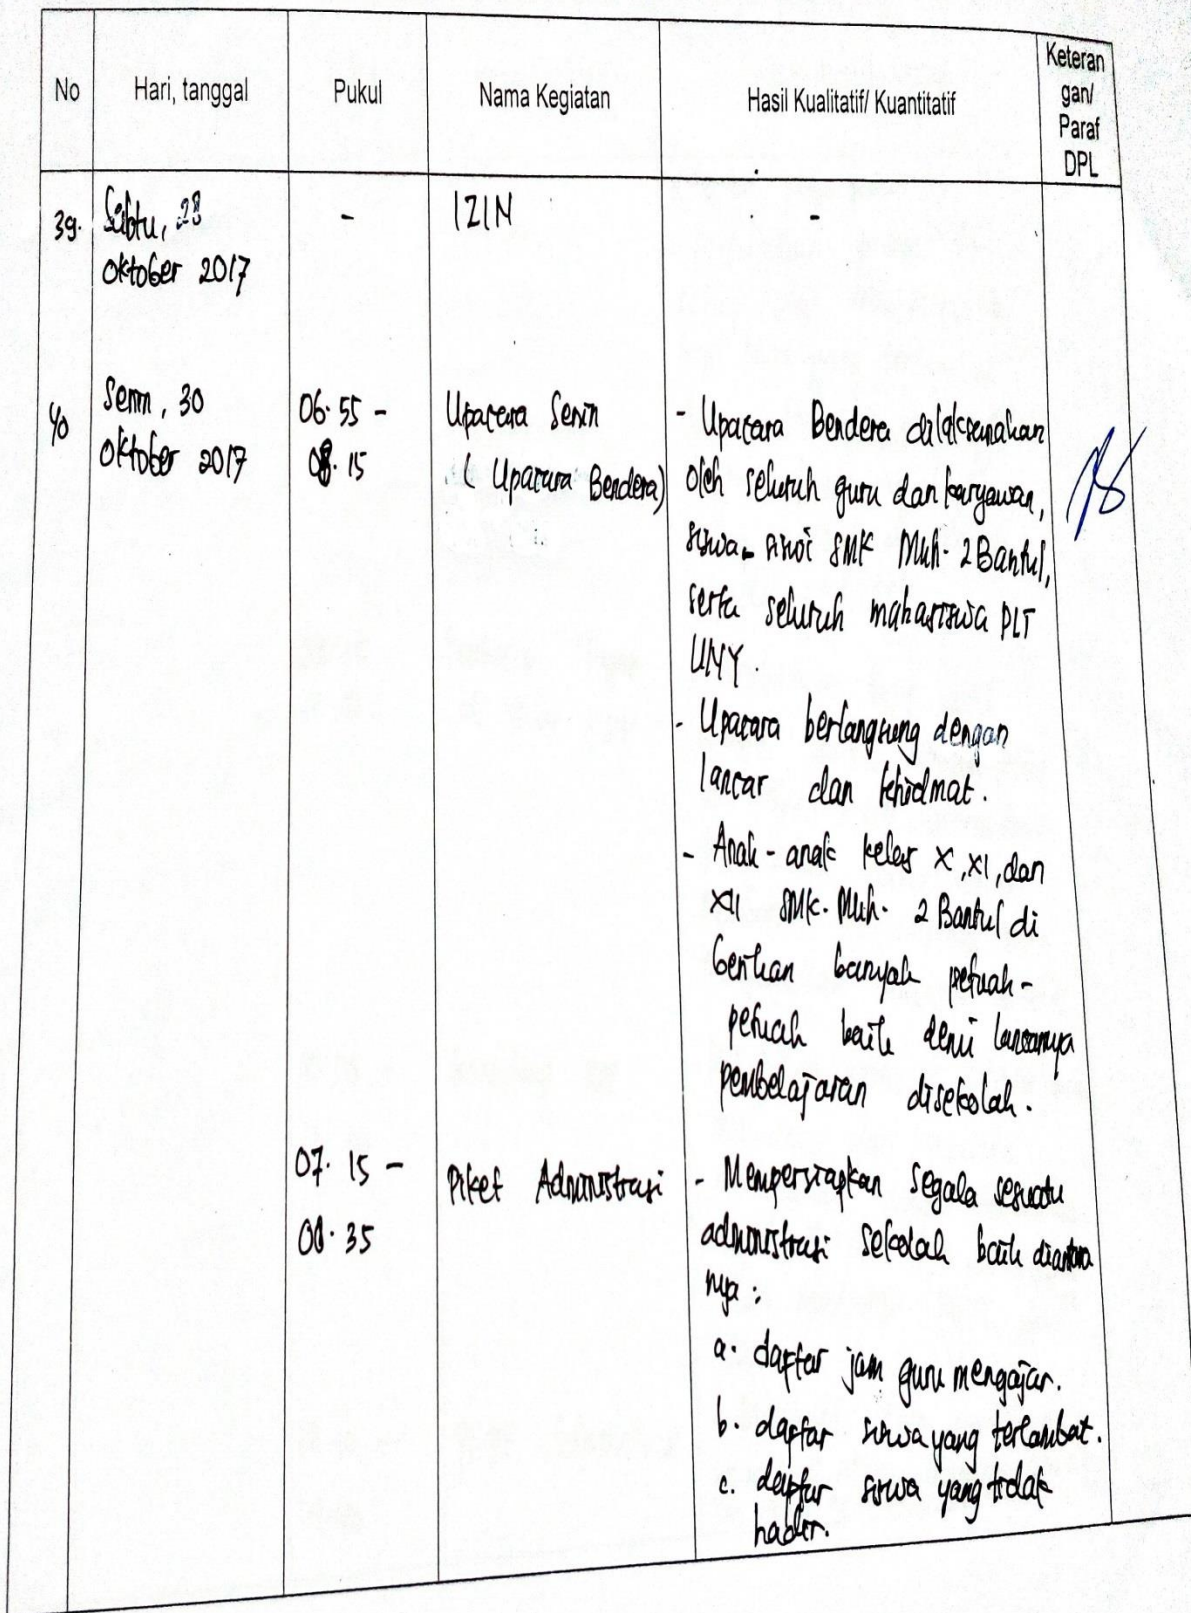 No
Hari, tanggal
Pukul
Nama Kegiatan
Hasil Kualitatif/ Kuantitatif
Keteran
gan/
Paraf
DPL
39.
Sabtu, 28
oktober 2017
-
IZIN
-
40
Senin, 30
oktober 2017
06.55 -
08.15
Upacara Senin
( Upacara Bendera)
- Upacara Bendera dilaksanakan
oleh seluruh guru dan karyawan,
siswa-siswi SMK Muh. 2 Bantul,
serta seluruh mahasiswa PLT
UNY.
- Upacara berlangsung dengan
lancar dan khidmat.
- Anak - anak kelas X, XI, dan
XII SMK. Muh. 2 Bantul di
berikan banyak petuah -
petuah baik demi lancarnya
pembelajaran disekolah.
07.15 -
08.35
Piket Administrasi
- Mempersiapkan segala sesuatu
administrasi sekolah baik diantara
nya :
a. daftar jam guru mengajar.
b. daftar siswa yang terlambat.
c. daftar siswa yang tidak
hadir.